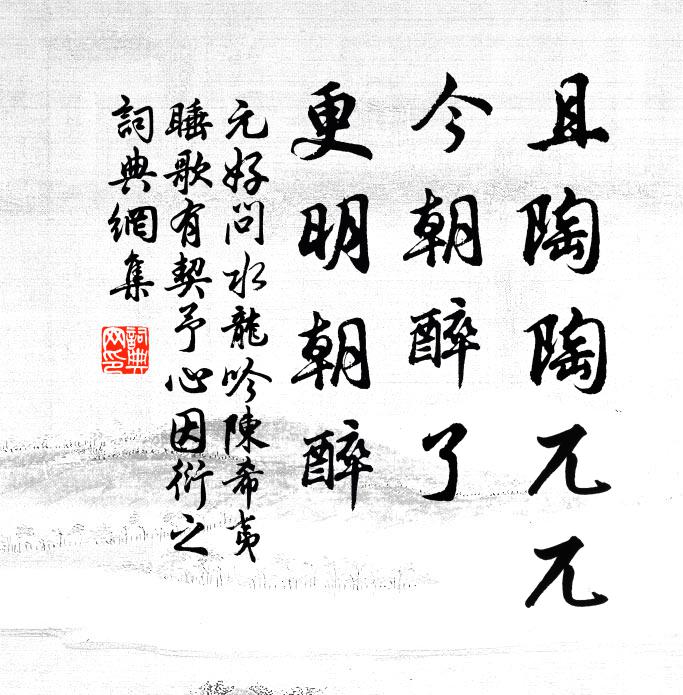 且陶陶兀兀
今朝醉了
更明朝醉
元好問水龍吟陳希夷
睡歌有契予心因衍之
詞典網集
詞典網印